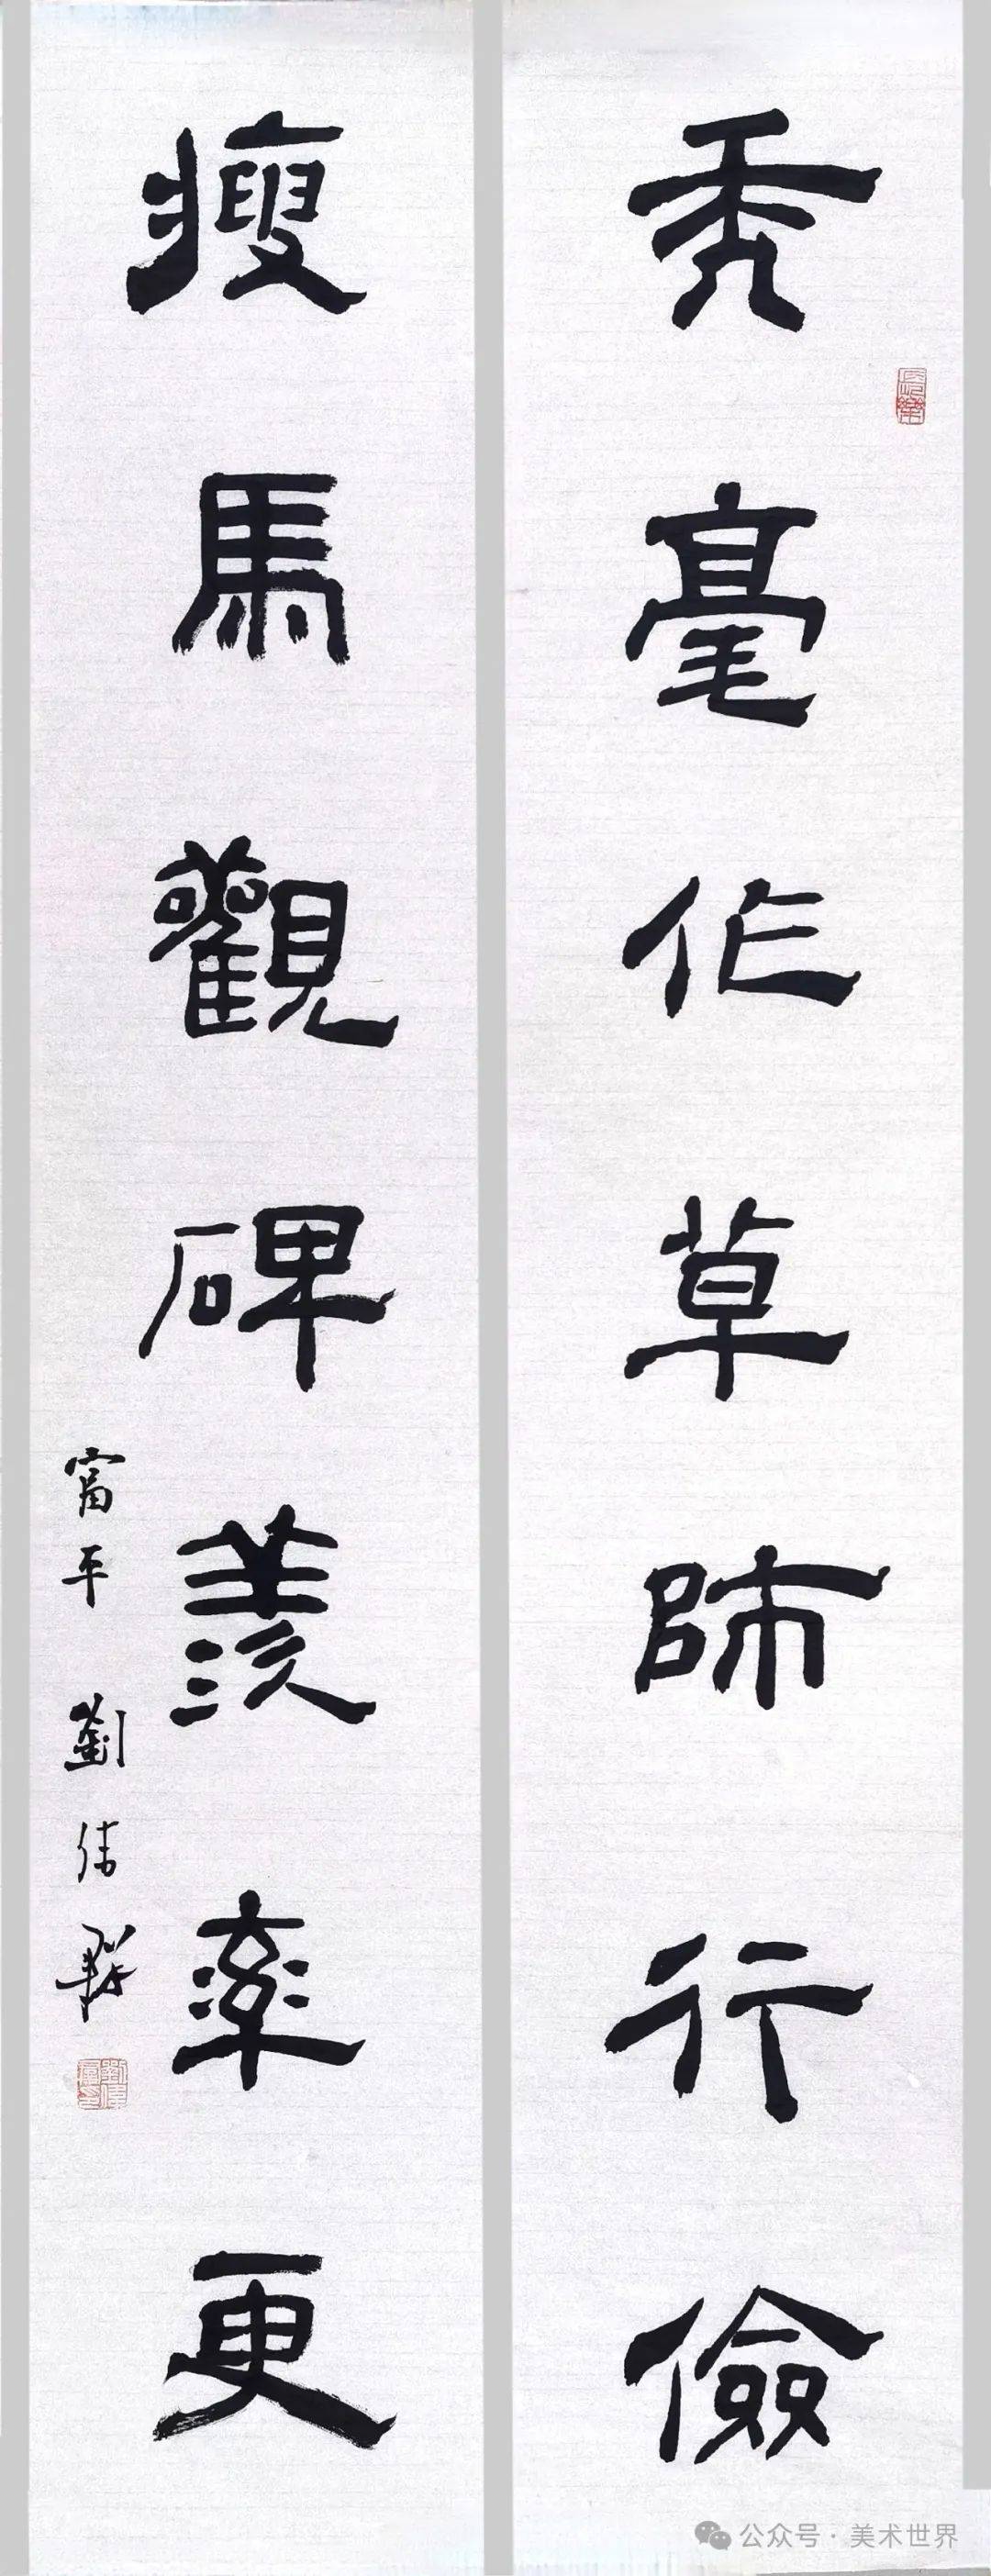 秃毫作草師行儉
瘦馬觀碑羨率更
富平 劉偉群
公众号·美术世界